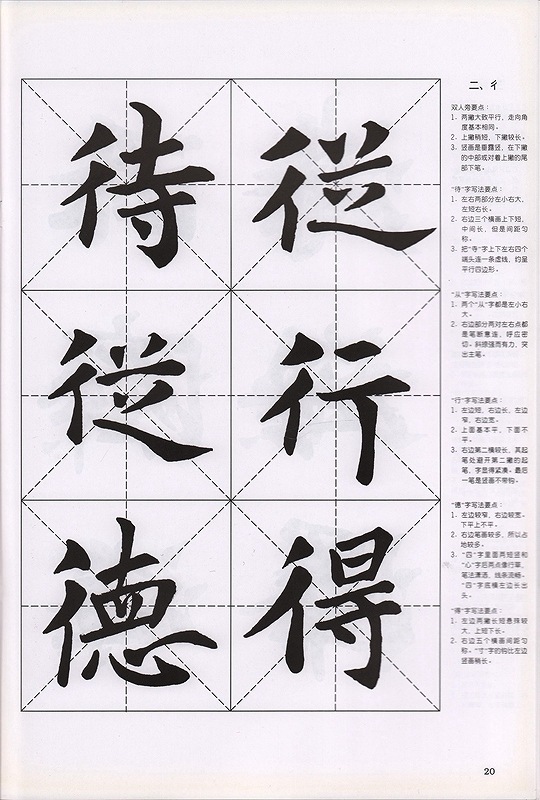 待 從
從 行
德 得
二、彳
双人旁要点：
1、两撇大致平行，走向角
度基本相同。
2、上撇稍短，下撇较长。
3、竖画是垂露竖，在下撇
的中部或对着上撇的尾
部下笔。
“待”字写法要点：
1、左右两部分左小右大，
左短右长。
2、右边三个横画上下短，
中间长，但是间距匀
称。
3、把“寺”字上下左右四个
端头连一条虚线，约呈
平行四边形。
“从”字写法要点：
1、两个“从”字都是左小右
大。
2、右边部分两对左右点都
是笔断意连，呼应密
切。斜捺强而有力，突
出主笔。
“行”字写法要点：
1、左边短，右边长，左边
窄，右边宽。
2、上面基本平，下面不
平。
3、右边第二横较长，其起
笔处避开第二撇的起
笔，字显得紧凑。最后
一笔是竖画不带钩。
“德”字写法要点：
1、左边较窄，右边较宽。
下平上不平。
2、右边笔画较多，所以占
地较多。
3、“四”字里面两短竖和
“心”字后两点像行草，
笔法潇洒，线条流畅。
“四”字底横左边长出
头。
“得”字写法要点：
1、左边两撇长短悬殊较
大，上短下长。
2、右边五个横画间距匀
称。“寸”字的钩比左边
竖画稍长。
20